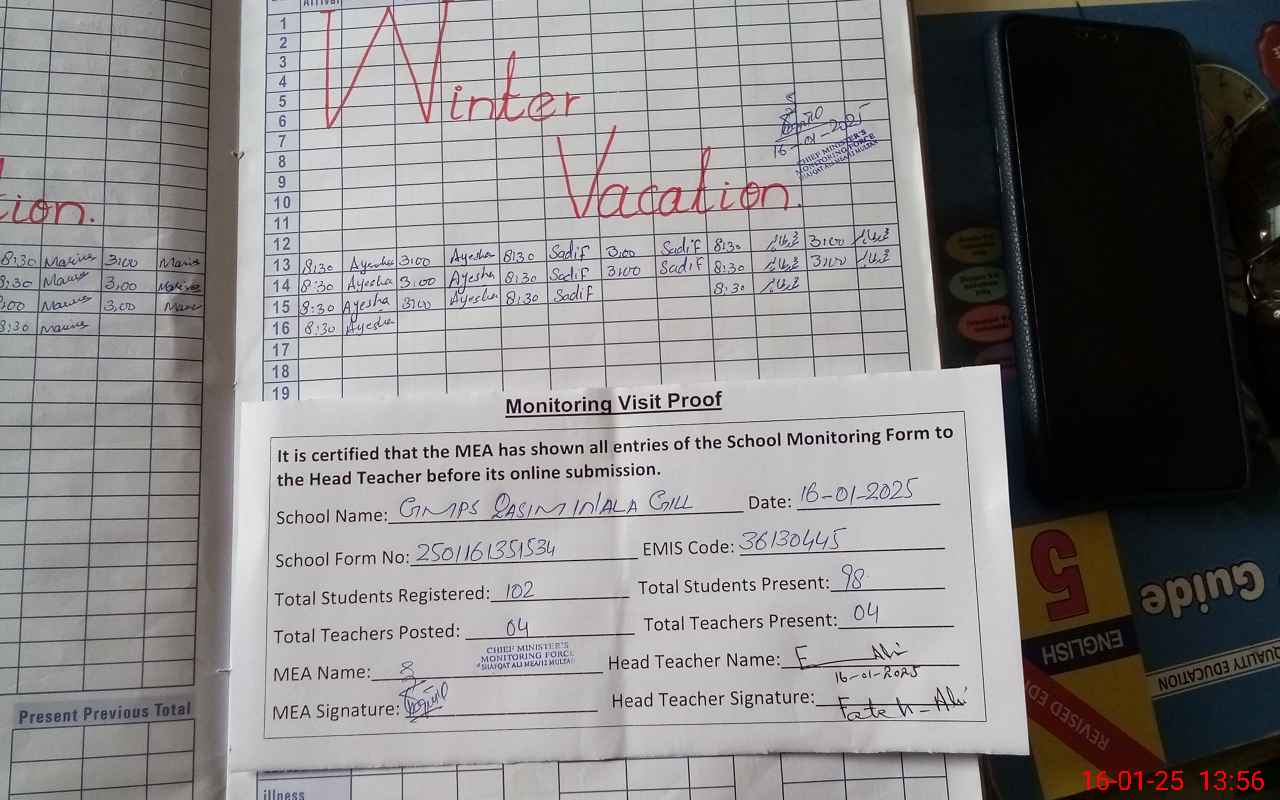 Arrival
1
2
3
4
5
6
7
8
9
10
11
12
13
14
15
16
17
18
19
Winter
Vacation.
tion.
16-01-2025
CHIEF MINISTER'S
MONITORING FORCE
SHAFQAT ALI MEA#12 MULTAN
8:30 Ayesha 3:00 Ayesha 8:30 Sadif 3:00 Sadif 8:30 3:00
8:30 Ayesha 3:00 Ayesha 8:30 Sadif 3:00 Sadif 8:30 3:00
8:30 Ayesha 3:00 Ayesha 8:30 Sadif 8:30
8:30 Ayesha
8:30 3:00
8:30 3:00
:00 3:00
8:30
Monitoring Visit Proof
It is certified that the MEA has shown all entries of the School Monitoring Form to
the Head Teacher before its online submission.
School Name: GMPS QASIM WALA GILL Date: 16-01-2025
School Form No: 2501161351534 EMIS Code: 36130445
Total Students Registered: 102 Total Students Present: 98
Total Teachers Posted: 04 Total Teachers Present: 04
MEA Name: CHIEF MINISTER'S
MONITORING FORCE
SHAFQAT ALI MEA#12 MULTAN
Head Teacher Name: F Ali
16-01-2025
MEA Signature: Head Teacher Signature: Fateh-Ali
Present Previous Total
illness
5
ENGLISH
Guide
QUALITY EDUCATION
REVISED ED
16-01-25 13:56